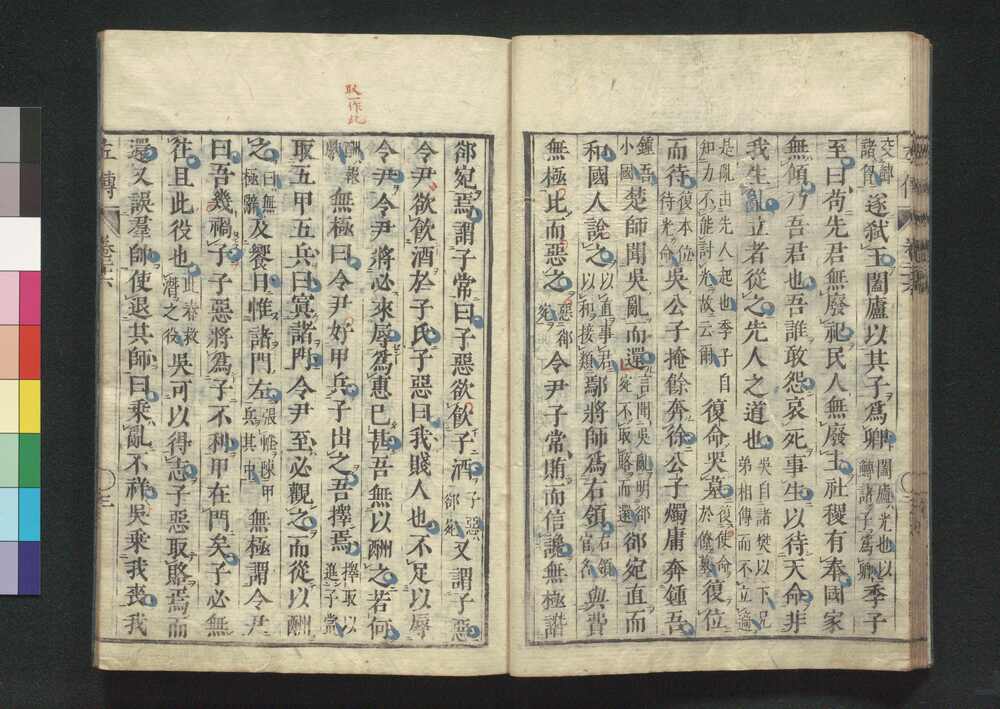 交轉諸胷遂弑王闔廬以其子爲卿闔廬光也以鱄諸子爲卿季子
至曰尚先君無廢祀民人無廢主社稷有奉國家
無傾乃吾君也吾誰敢怨哀死事生以待天命非
我生亂立者從之先人之道也吳自諸樊以下兄弟相傳而不立適
是亂由先人起也季子自知力不能討光故云爾復命哭墓復使命於僚墓復位
而待復本位待光命吳公子掩餘奔徐公子燭庸奔鍾吾
鍾吾小國楚師聞吳亂而還言聞吳亂明郤宛不取賂而還郤宛直而
和國人說之以直事君以和接類鄢將師爲右領右領官名與費
無極比而惡之惡郤宛令尹子常賄而信讒無極譖
郤宛焉謂子常曰子惡欲飮子酒子惡郤宛又謂子惡
令尹欲飮酒於子氏子惡曰我賤人也不足以辱
令尹令尹將必來辱爲惠已甚吾無以酬之若何
酬報獻無極曰令尹好甲兵子出之吾擇焉擇取以進子常
取五甲五兵曰寘諸門令尹至必觀之而從以酬
之曰無極辭及饗日帷諸門左張帷陳甲兵其中無極謂令尹
曰吾幾禍子子惡將爲子不利甲在門矣子必無
往且此役也此春救潛之役吳可以得志子惡取賂焉而
還又誤羣帥使退其師曰乘亂不祥吳乘我喪我
取一作此
左傳
卷二十六
三